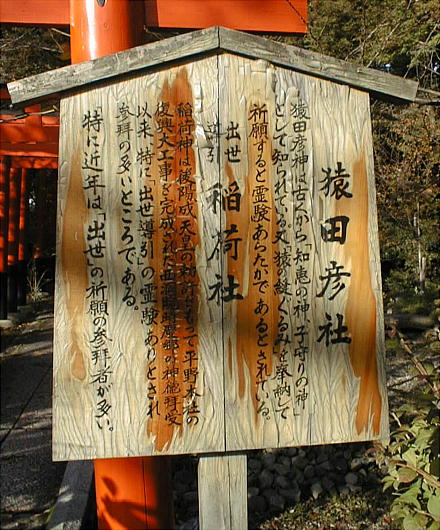 猿田彦社
猿田彦神は古くから「知恵の神・子守りの神」
として知られている。天猿の縫ぐるみを奉納して
祈願すると霊験あらたかであるとされている。
出世
導引
稲荷社
稲荷神は後陽成天皇の勅許をもって平野本社の
復興大工事を完成された西洞院時慶郷の神徳拝受
以来、特に「出世導引」の霊験ありとされ
参拝の多いところである。
特に近年は「出世」の祈願の参拝者が多い。